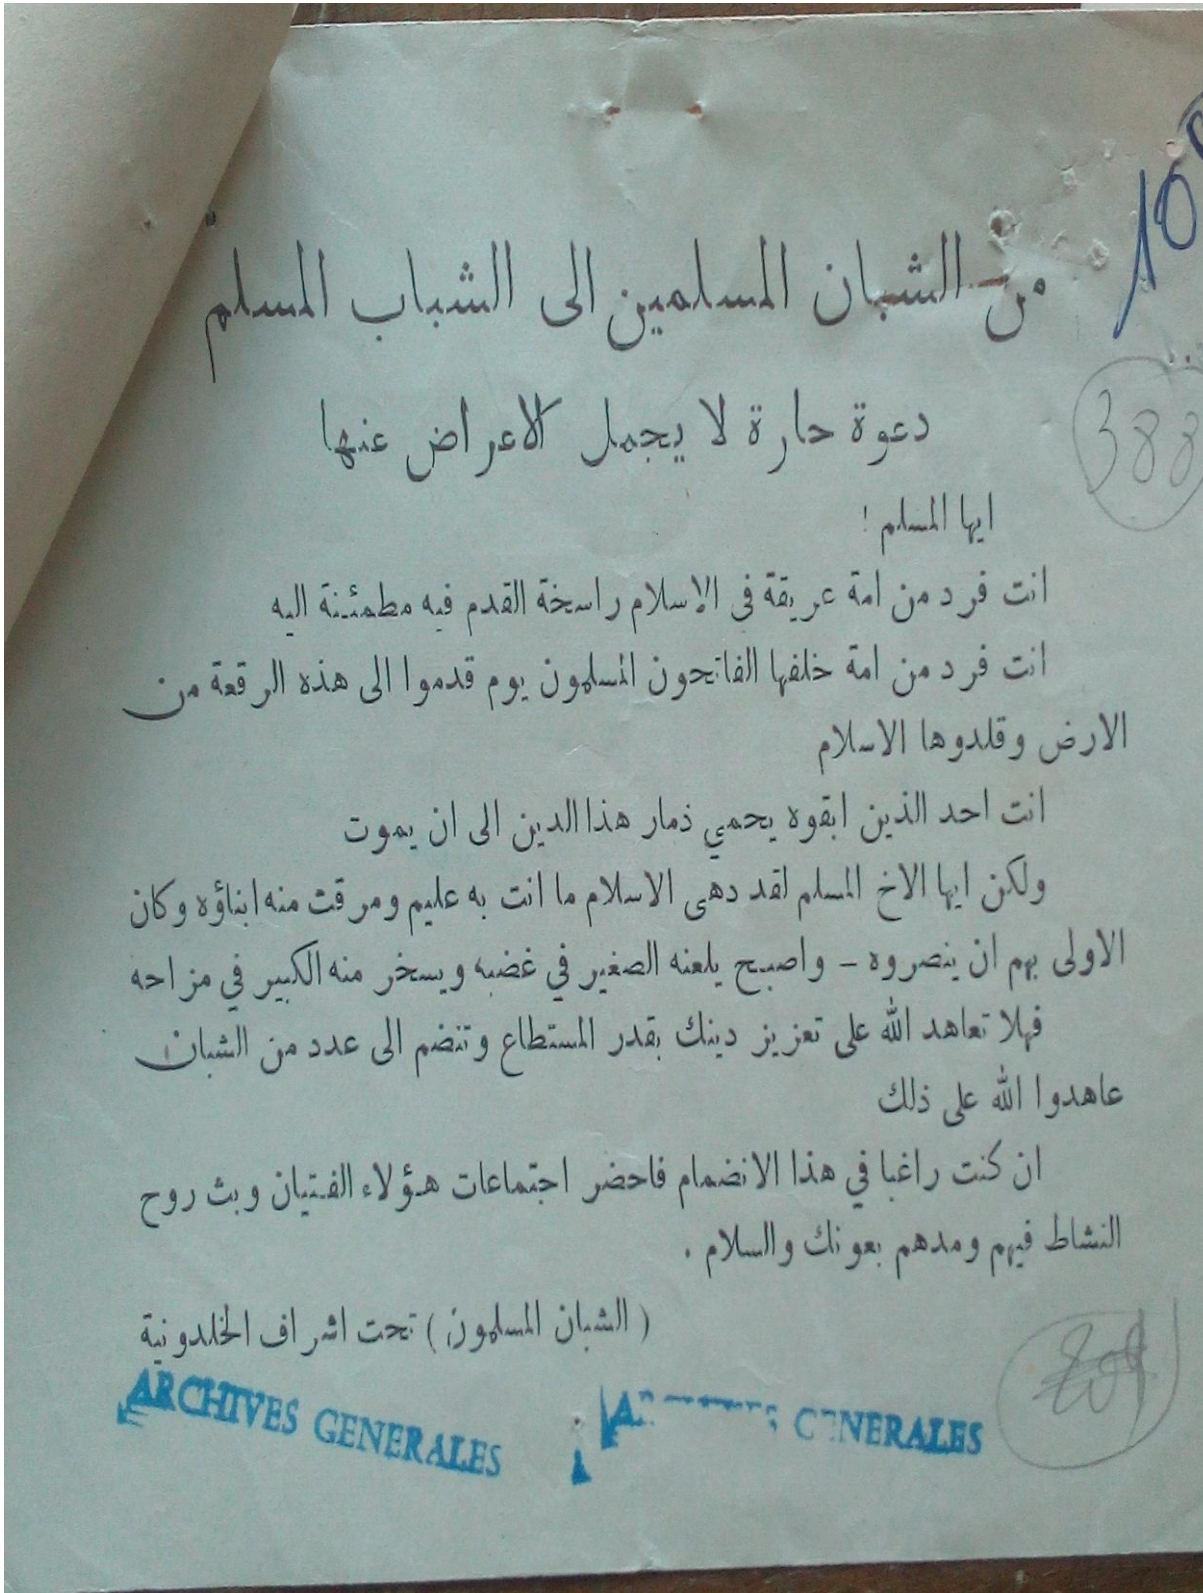 من الشبان المسلمين الى الشباب المسلم
دعوة حارة لا يجمل الاعراض عنها
ايها المسلم !
انت فرد من امة عريقة فى الاسلام راسخة القدم فيه مطمئنة اليه
انت فرد من امة خلفها الفاتحون المسلمون يوم قدموا الى هذه الرقعة من
الارض وقلدوها الاسلام
انت احد الذين ابقوه يحمي ذمار هذا الدين الى ان يموت
ولكن ايها الاخ المسلم لقد دهى الاسلام ما انت به عليم ومرقت منه ابناؤه وكان
الاولى بهم ان ينصروه – واصبح يلعنه الصغير في غضبه ويسخر منه الكبير في مزاحه
فهلا تعاهد الله على تعزيز دينك بقدر المستطاع وتنضم الى عدد من الشبان
عاهدوا الله على ذلك
ان كنت راغبا في هذا الانضمام فاحضر اجتماعات هؤلاء الفتيان وبث روح
النشاط فيهم ومدهم بعونك والسلام .
( الشبان المسلمون ) تحت اشراف الخلدونية
ARCHIVES GENERALES
GENERALES
388